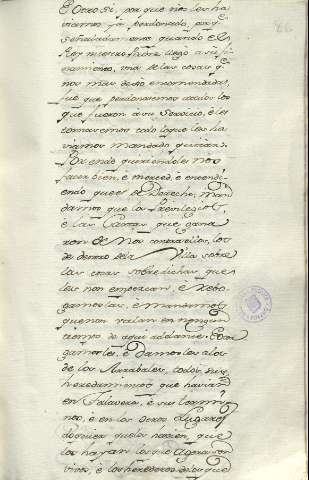 E Otro si, por que nos les ha
viamos ya perdonado, è
señaladamente quando el
Rey nuestro Padre llegò a su fi
namiento, una de las cosas q.
nos mas dexò encomendadas,
fue que perdonasemos a todos los
que fueron a su servicio, è les
tornasemos todo lo que les ha
viamos mandado quitar:
Por ende queriendoles nos
facer bien, è merced, è enten di
endo que es de Derecho, man
damos que los Previlegios,
è las Cartas que gana
ron de Nos contra ellos, los
de dentro de la Villa sobre
las cosas sobredichas que
les non empezcan, è rebo
gamoslas, è mandamos
que non valan en ningun
tiempo de aqui adelante. Otor
gamosles, è Damosles a los
de los Arrabales, todos sus
heredamientos que havian
en Talavera, è sus termi
nos, è en los otros Lugares
do quier que los havien, que
los hayan los que agora son
vivos, è los herederos de los que